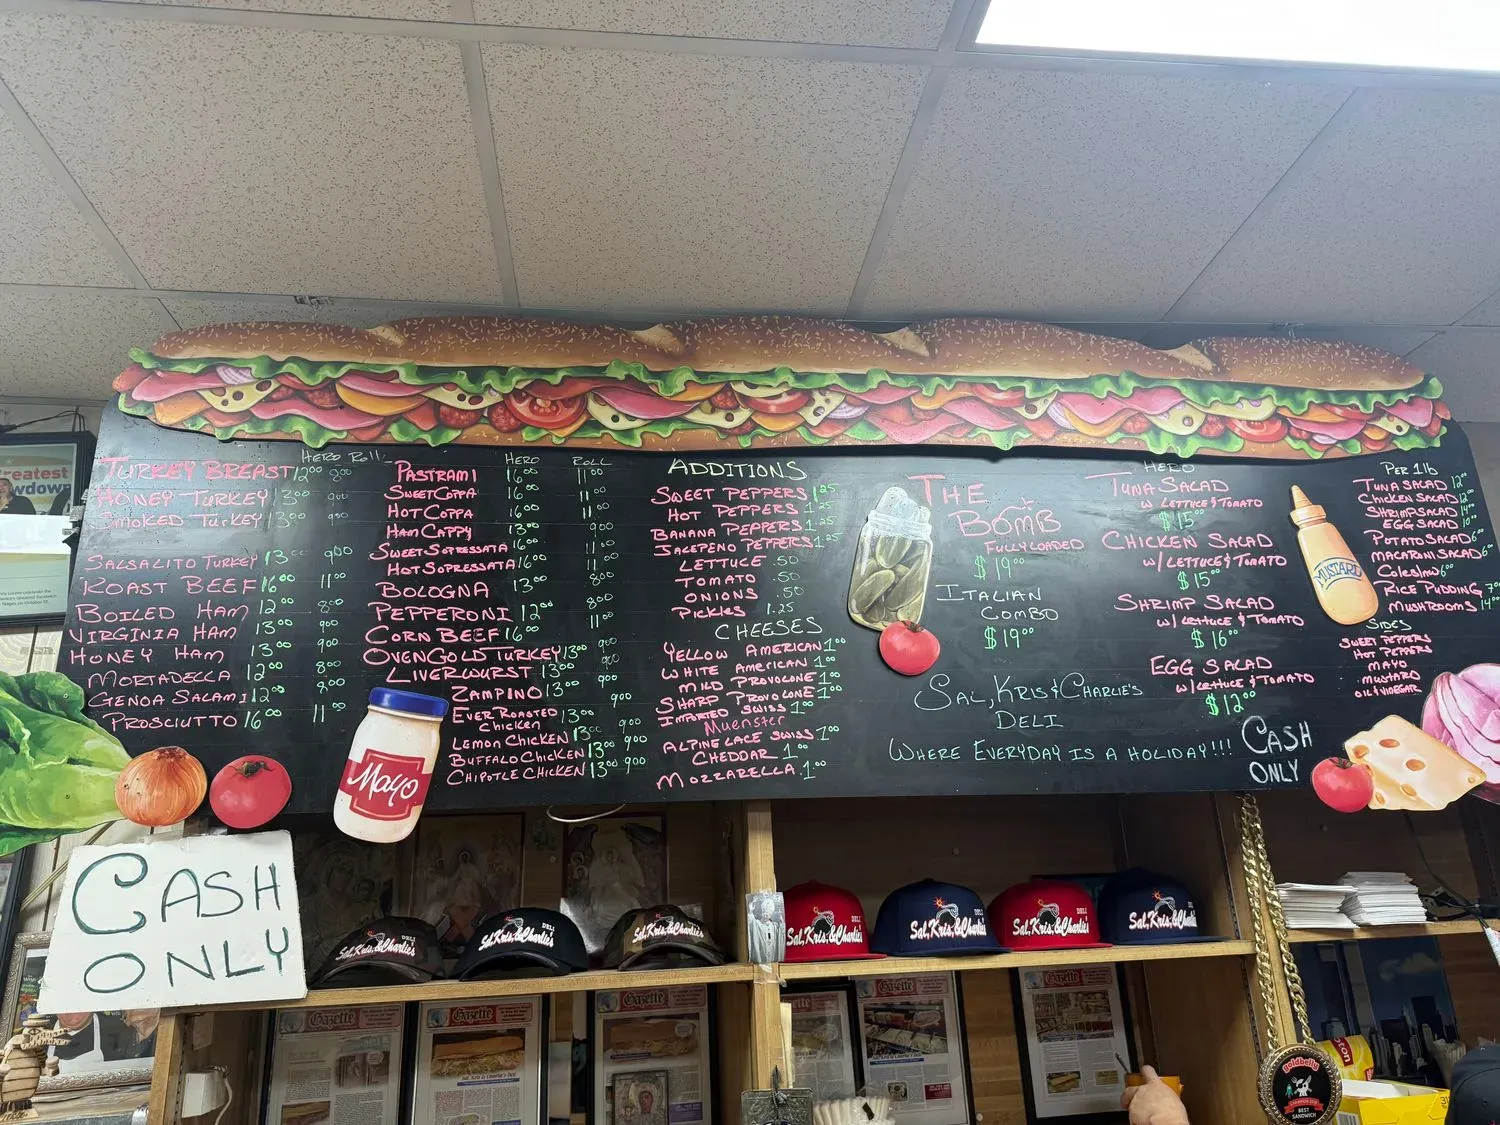 HERO ROLL
TURKEY BREAST 12⁰⁰ 8⁰⁰
HONEY TURKEY 13⁰⁰ 9⁰⁰
SMOKED TURKEY 13⁰⁰ 9⁰⁰
SALSALITO TURKEY 13⁰⁰ 9⁰⁰
ROAST BEEF 16⁰⁰ 11⁰⁰
BOILED HAM 12⁰⁰ 8⁰⁰
VIRGINIA HAM 13⁰⁰ 9⁰⁰
HONEY HAM 13⁰⁰ 9⁰⁰
MORTADELLA 12⁰⁰ 8⁰⁰
GENOA SALAMI 12⁰⁰ 8⁰⁰
PROSCIUTTO 16⁰⁰ 11⁰⁰
HERO ROLL
PASTRAMI 16⁰⁰ 11⁰⁰
SWEET COPPA 16⁰⁰ 11⁰⁰
HOT COPPA 16⁰⁰ 11⁰⁰
HAM CAPPY 13⁰⁰ 9⁰⁰
SWEET SOPRESSATA 16⁰⁰ 11⁰⁰
HOT SOPRESSATA 16⁰⁰ 11⁰⁰
BOLOGNA 13⁰⁰ 8⁰⁰
PEPPERONI 12⁰⁰ 8⁰⁰
CORN BEEF 16⁰⁰ 11⁰⁰
OVENGOLD TURKEY 13⁰⁰ 9⁰⁰
LIVERWURST 13⁰⁰ 9⁰⁰
ZAMPINO 13⁰⁰ 9⁰⁰
EVER ROASTED
CHICKEN 13⁰⁰ 9⁰⁰
LEMON CHICKEN 13⁰⁰ 9⁰⁰
BUFFALO CHICKEN 13⁰⁰ 9⁰⁰
CHIPOTLE CHICKEN 13⁰⁰ 9⁰⁰
Mayo
ADDITIONS
SWEET PEPPERS 1.25
HOT PEPPERS 1.25
BANANA PEPPERS 1.25
JALEPENO PEPPERS 1.25
LETTUCE .50
TOMATO .50
ONIONS .50
PICKLES 1.25
CHEESES
YELLOW AMERICAN 1⁰⁰
WHITE AMERICAN 1⁰⁰
MILD PROVOLONE 1⁰⁰
SHARP PROVOLONE 1⁰⁰
IMPORTED SWISS 1⁰⁰
Muenster
ALPINE LACE SWISS 1⁰⁰
CHEDDAR 1⁰⁰
MOZZARELLA 1⁰⁰
THE
BOMB
FULLY LOADED
$19⁰⁰
ITALIAN
COMBO
$19⁰⁰
HERO
TUNA SALAD
W LETTUCE & TOMATO
$15⁰⁰
CHICKEN SALAD
W/LETTUCE & TOMATO
$15⁰⁰
SHRIMP SALAD
W/ LETTUCE & TOMATO
$16⁰⁰
EGG SALAD
W/LETTUCE & TOMATO
$12⁰⁰
SAL, KRIS & CHARLIE'S
DELI
WHERE EVERYDAY IS A HOLIDAY!!!
CASH
ONLY
MUSTARD
PER 1lb
TUNA SALAD 12⁰⁰
CHICKEN SALAD 12⁰⁰
SHRIMP SALAD 14⁰⁰
EGG SALAD 10⁰⁰
POTATO SALAD 6⁰⁰
MACARONI SALAD 6⁰⁰
Coleslaw 6⁰⁰
RICE PUDDING 7⁰⁰
MUSHROOMS 14⁰⁰
SIDES
SWEET PEPPERS
HOT PEPPERS
MAYO
MUSTARD
OIL & VINEGAR
CASH
ONLY
Sal, Kris, & Charlie's DELI
Sal, Kris, & Charlie's DELI
Sal, Kris, & Charlie's
Sal, Kris, & Charlie's DELI
Sal, Kris, & Charlie's DELI
Sal, Kris, & Charlie's DELI
Sal, Kris, & Charlie's DELI
Gazette
Gazette
Gazette
Gazette
Gazette
Gazette
goldbelly
BEST
SANDWICH